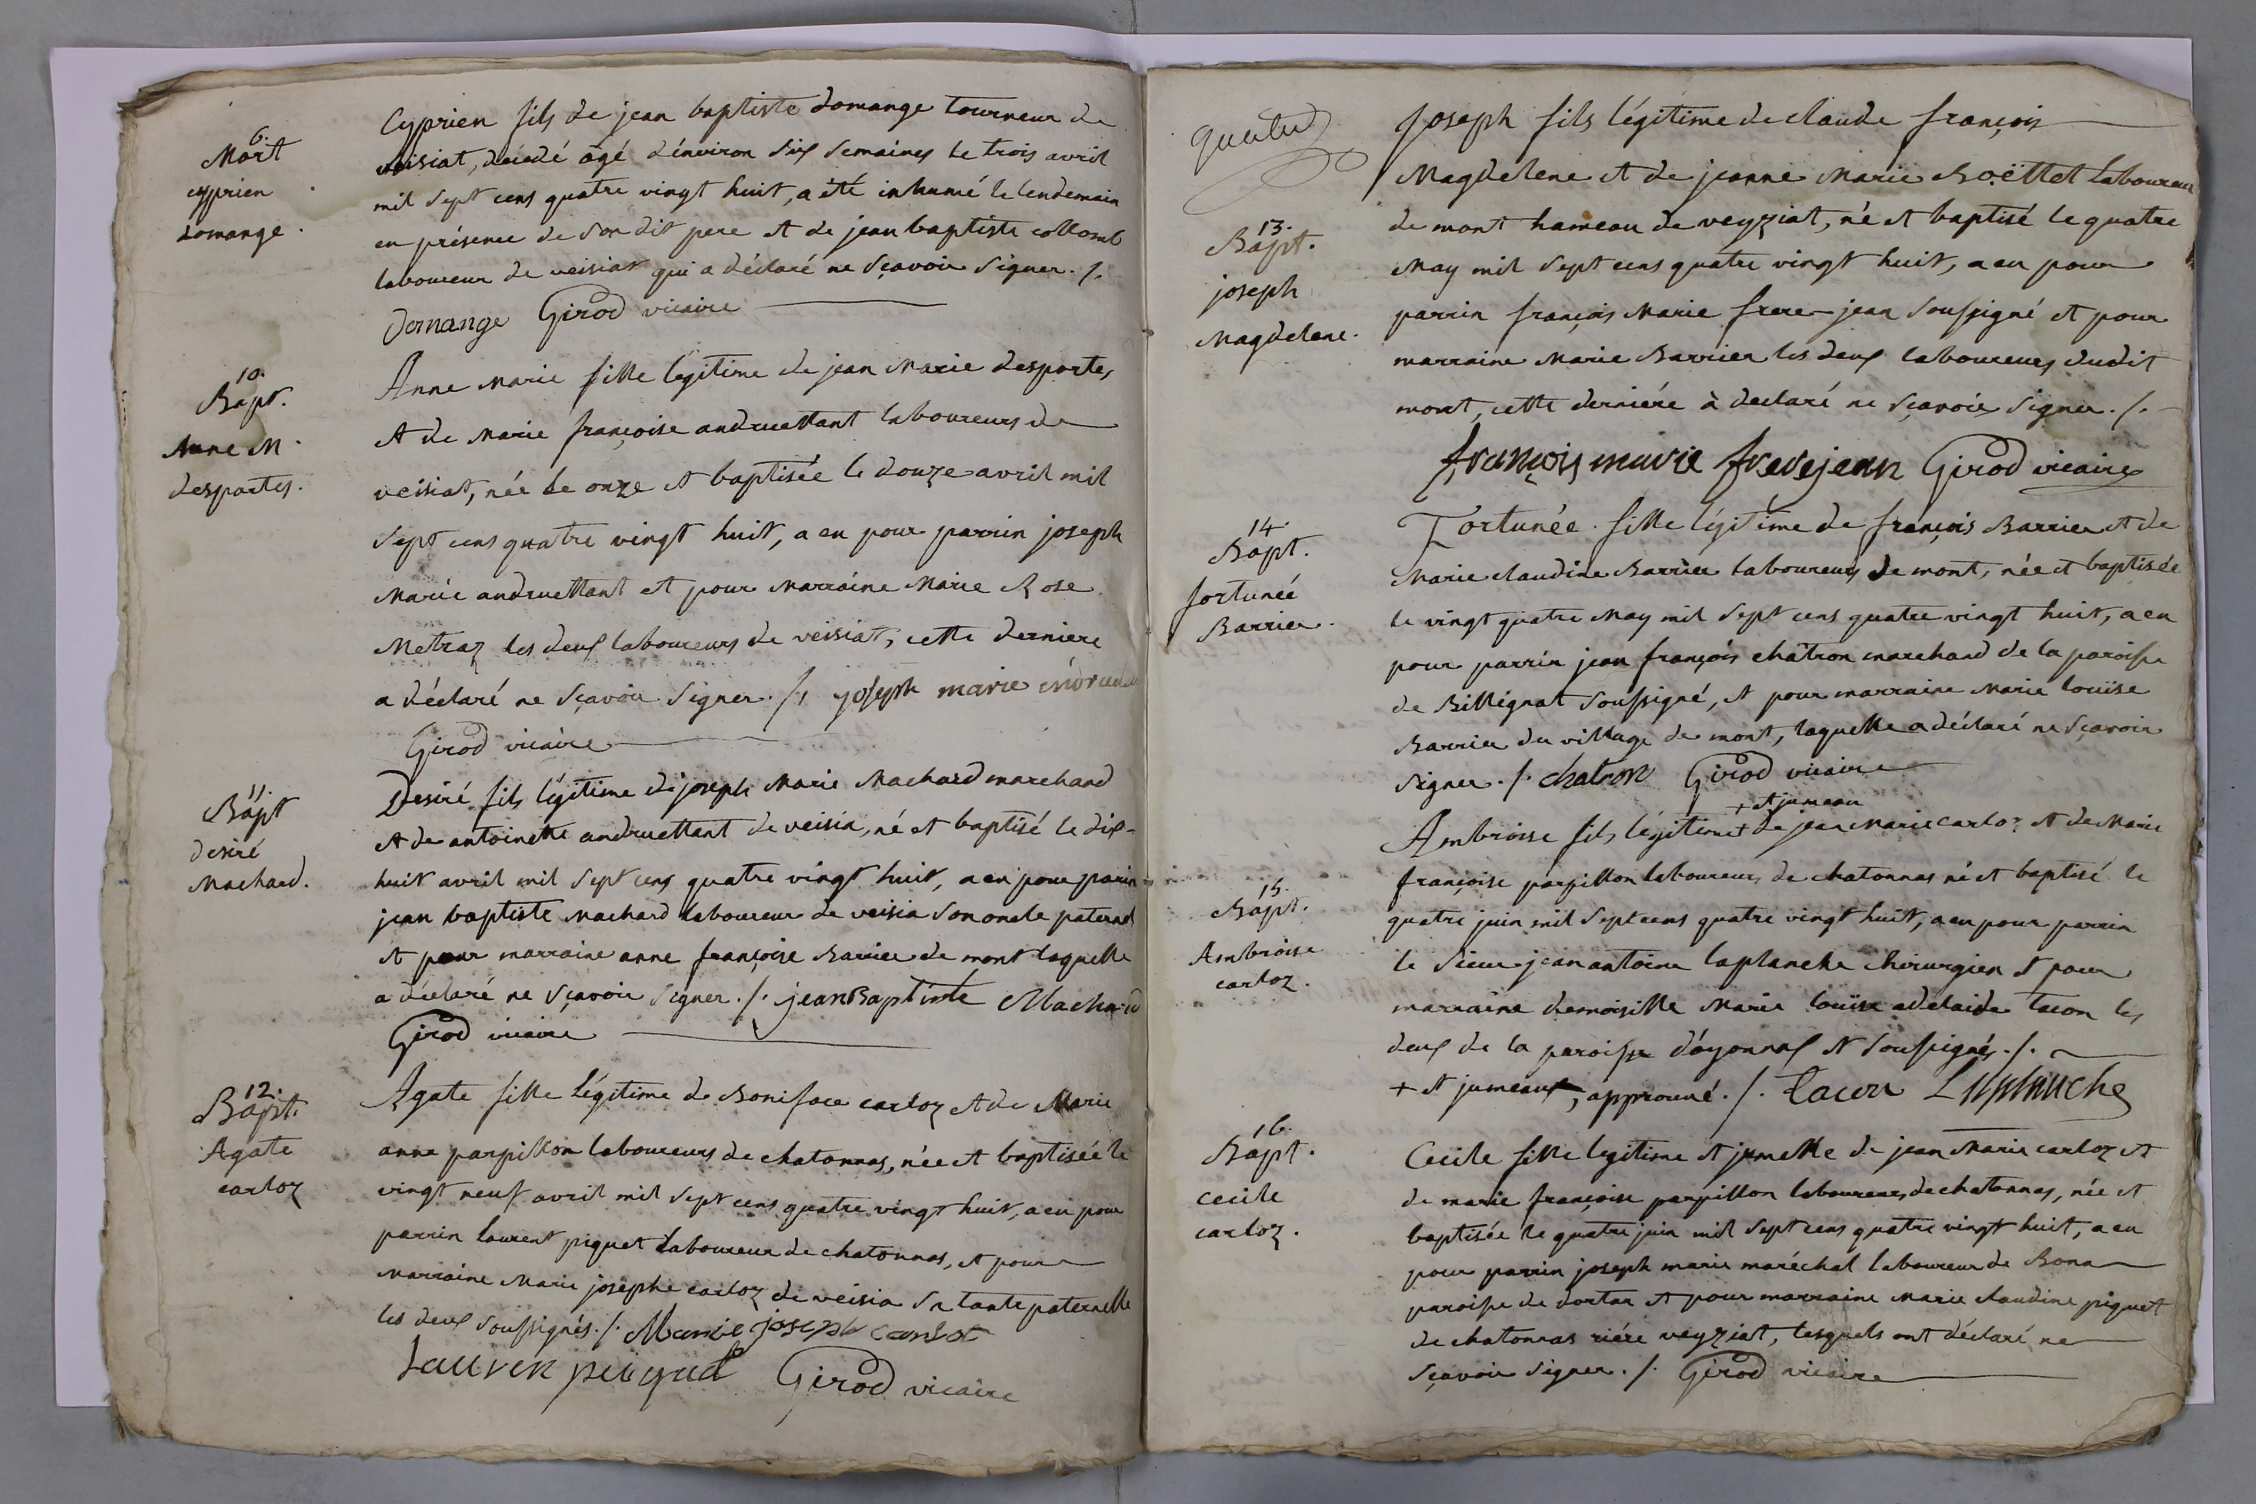 6.
Mort
cyprien
domange.
Cyprien fils de jean baptiste domange tourneur de
veisiat, décédé âgé d'environ six semaines le trois avril
mil sept cens quatre vingt huit, a été inhumé le lendemain
en présence de son dit pere et de jean baptiste collomb
laboureur de veisiat qui a déclaré ne sçavoir signer. /.
Domange Girod vicaire
10.
Bapt.
Anne M.
desportes.
Anne Marie fille légitime de jean Marie desportes
et de Marie françoise andruettant laboureurs de
veisiat, née le onze et baptisée le douze avril mil
sept cens quatre vingt huit, a eu pour parrin joseph
Marie andruettant et pour Marraine Marie Rose
Metraz les deux laboureurs de veisiat, cette derniere
a déclaré ne sçavoir signer. /. joseph marie
Girod vicaire
11.
Bapt
desiré
Machard.
Desiré fils légitime de joseph Marie Machard marchand
et de antoinette andruettant de veisia, né et baptisé le dix-
huit avril mil sept cens quatre vingt huit, a eu pour parin
jean baptiste Machard laboureur de veisia son oncle paternel
et pour marraine anne françoise Barrier de mont laquelle
a déclaré ne sçavoir signer. /. jean Baptiste Machard
Girod vicaire
12.
Bapt.
Agate
carloz
Agate fille légitime de Boniface carloz et de Marie
anne parpillon laboureurs de chatonnas, née et baptisée le
vingt neuf avril mil sept cens quatre vingt huit, a eu pour
parrin laurent piquet laboureur de chatonnas, et pour
Marraine Marie josephe carloz de veisia sa tante paternelle
les deux soussignés. /. Marie joseph carlot
Lauren Girod vicaire
13.
Bapt.
joseph
Magdelene.
Joseph fils légitime de claude françois
Magdelene et de jeanne Marie Boëttet laboureur
de mont hameau de veyziat, né et baptisé le quatre
May mil sept cens quatre vingt huit, a eu pour
parrin françois Marie frere-jean soussigné et pour
marraine Marie Barrier les deux laboureurs dudit
mont, cette derniére à declaré ne sçavoir signer. /.
françois marie frerejean Girod vicaire
14
Bapt.
fortunée
Barrier.
Fortunée fille légitime de françois Barrier et de
Marie claudine Barrier laboureurs de mont, née et baptisée
le vingt quatre May mil sept cens quatre vingt huit, a eu
pour parrin jean françois châtron marchand de la paroisse
de Billégnat soussigné, et pour marraine Marie louïse
Barrier du village de mont, laquelle a déclaré ne sçavoir
signer. /. chatron Girod vicaire
+ et jumeau
15.
Bapt.
Ambroise
carloz.
Ambroise fils légitime + de jean Marie carloz et de Marie
françoise parpillon laboureurs de chatonnas né et baptisé le
quatre juin mil sept cens quatre vingt huit, a eu pour parrin
le sieur jean antoine laplanche chirurgien et pour
marraine demoiselle Marie louïse adelaide tacon les
deux de la paroisse d'oyonnax et soussignés. /.
+ et jumeaux, approuvé. /. Tacon Laplanche
16.
Bapt.
cecile
carloz.
Cecile fille legitime et jumelle de jean Marie carloz et
de marie françoise parpillon laboureurs de chatonnas, née et
baptisée le quatre juin mil sept cens quatre vingt huit, a eu
pour parrin joseph marie maréchal laboureur de Bona
paroisse de dortan et pour marraine Marie claudine piquet
de chatonnas riére veyziat, lesquels ont déclaré ne
sçavoir signer. /. Girod vicaire